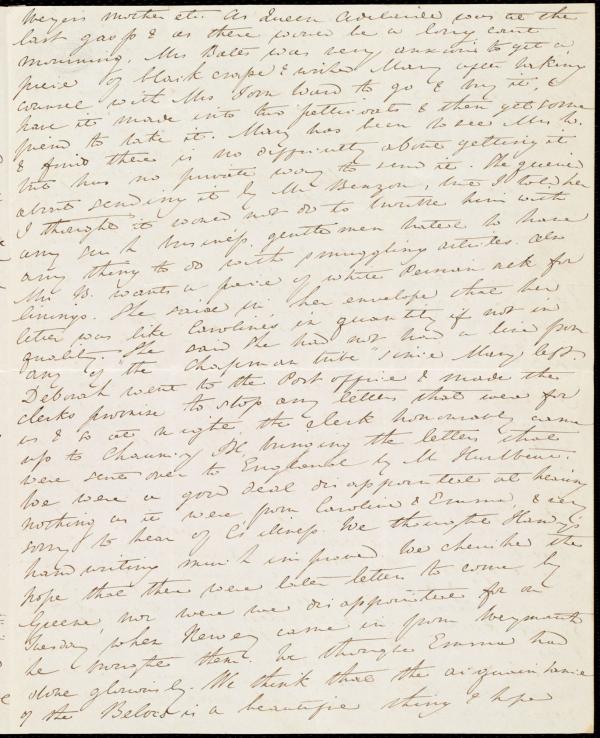 mother etc. As Queen Adelaide was at the
last gasp & as there would be a long court
mourning, Mrs Bates was very anxious to get a
piece of black crape & wished Mary after taking
counsel with Mrs Tom Ward to go & buy it, &
have it made into two petticoats & then get some
to take it. Mary has been to see Mrs W.
& finds there is no difficulty about getting it
but has no private way to send it. She queried
about sending it by Mr Benzon, but I told her
I thought it would not do to trouble him with
any such business, gentlemen hated to have
any thing to do with smuggling articles. Also
Mrs B. wants a piece of white Persian silk for
linings. She said in her envelope that her
letter was like Caroline's in quantity if not in
quality. She said she had not had a line from
any of "the Chapman tribe" since Mary left.
Deborah went to the Post office & made the
clerks promise to stop any letters that were for
us & so at night the clerk honourably came
up to Chauncy Pl. bringing the letters that
were sent over to England by M Hurlbeur.
We were a good deal disappointed at having
nothing as it were from Caroline & Emma, & very
sorry to hear of C's illness. We thought
handwriting much improved. We cherished the
hope that there were later letters to come by
Greene, nor were we disappointed for on
Tuesday when Hervey came in from Weymouth
he brought them. We thought Emma had
done gloriously. We think that the acquaintance
of the is a beautiful thing & hope